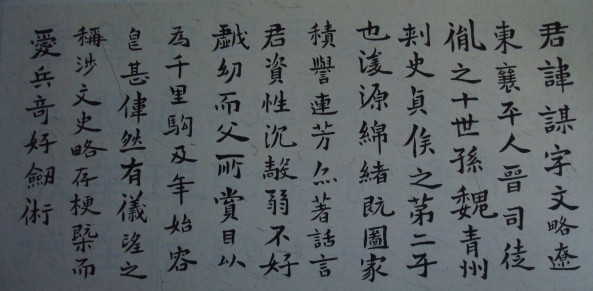 君諱謀字文略遼
東襄平人晉司徒
胤之十世孫魏青州
刾史貞侯之第二子
也濬源綿緒既圖家
積譽連芳亦著話言
君資性沉懿弱不好
戲幼而父所賞目以
為千里駒及年始容
皃甚偉然有儀望之
稱涉文史略存梗槩而
愛兵奇好劒術